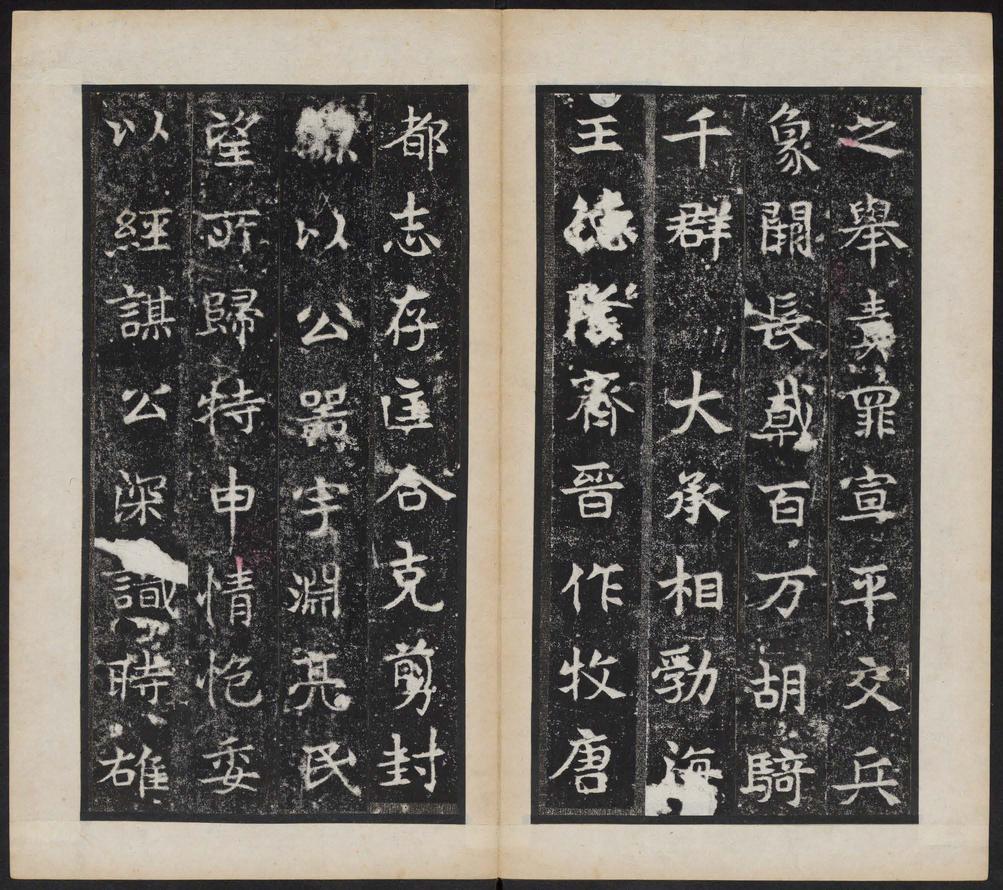 之舉責罪宣平交兵
象闕長戟百万胡騎
千群大承相勃海
王德隆齊晉作牧唐
都志存匡合克剪封
以公器宇淵亮民
望所歸特申情抱委
以經謀公深識時雄